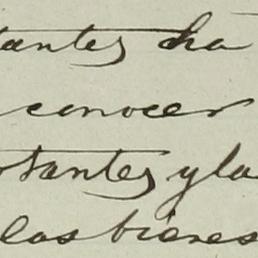 tantes ha
conocer
rtantes y la
las bienes